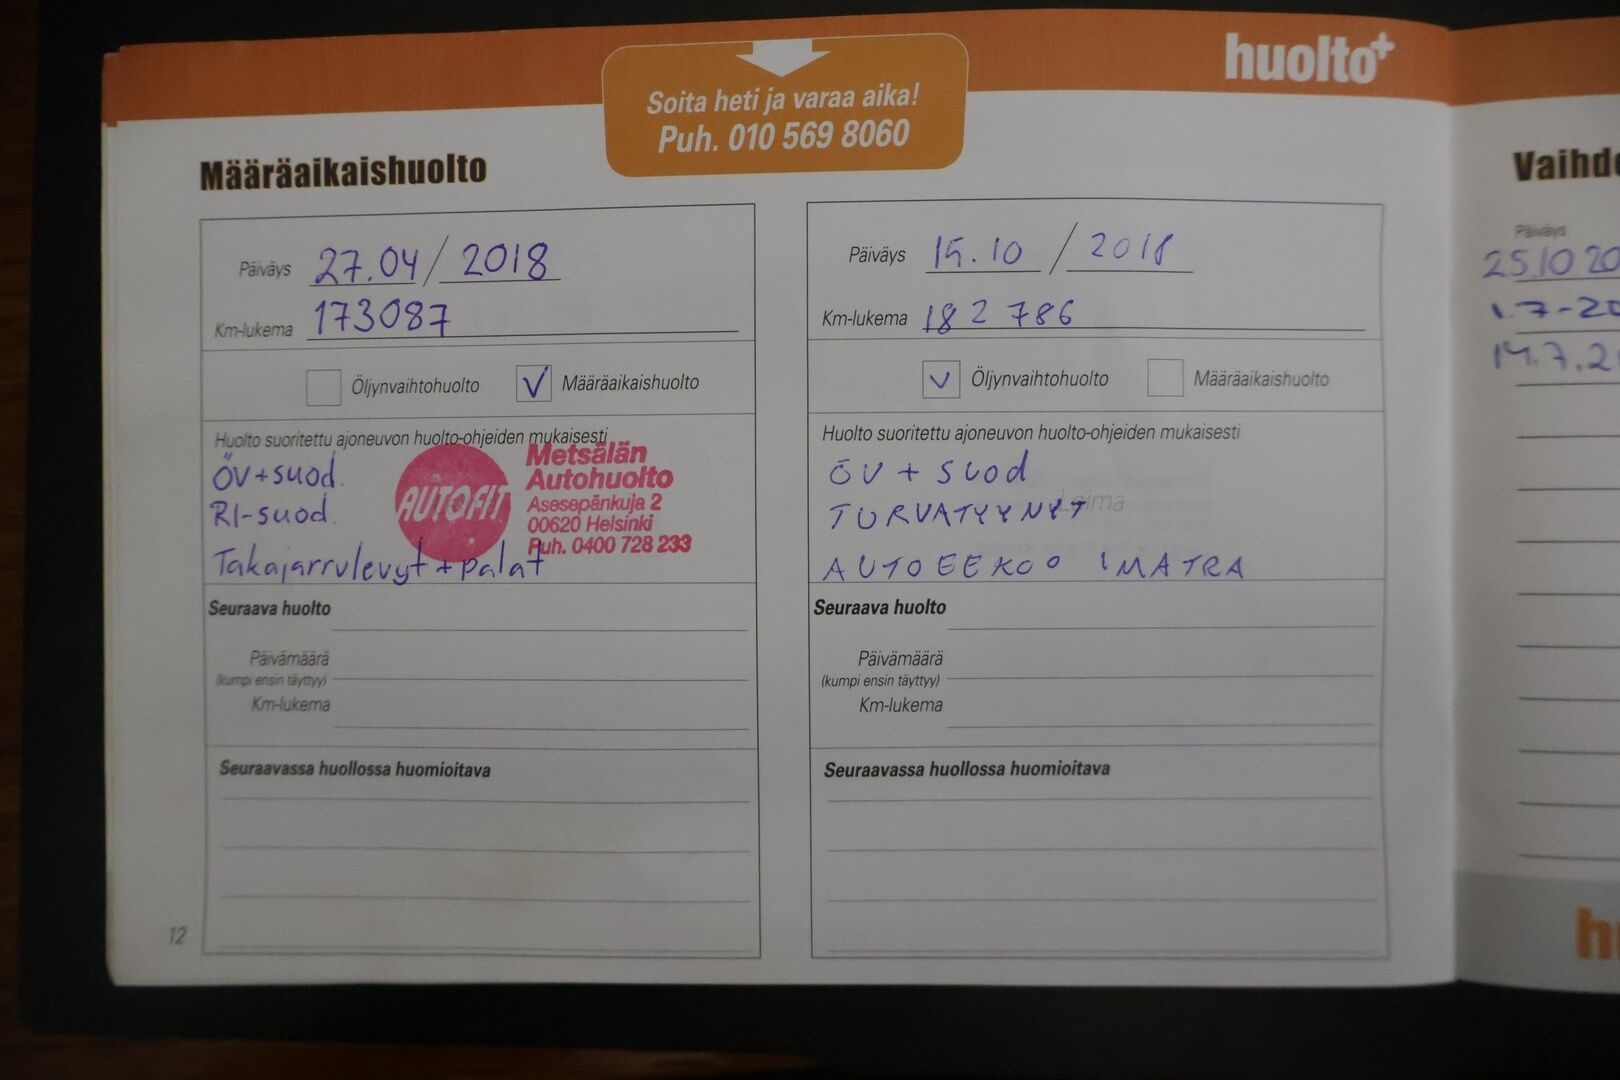 huolto+
Soita heti ja varaa aika!
Puh. 010 569 8060
Määräaikaishuolto
Päiväys 27.04 / 2018
Km-lukema 173087
Öljynvaihtohuolto Määräaikaishuolto
Huolto suoritettu ajoneuvon huolto-ohjeiden mukaisesti
ÖV+suod.
RI-suod.
Takajarrulevyt + palat
AUTOFIT
Metsälän
Autohuolto
Asesepänkuja 2
00620 Helsinki
Puh. 0400 728 233
Seuraava huolto
Päivämäärä
(kumpi ensin täyttyy)
Km-lukema
Seuraavassa huollossa huomioitava
12
Päiväys 15.10 / 2018
Km-lukema 182 786
Öljynvaihtohuolto Määräaikaishuolto
Huolto suoritettu ajoneuvon huolto-ohjeiden mukaisesti
ÖV + SUOD
Leima
TURVATYYNYT
AUTOEEKOO IMATRA
Seuraava huolto
Päivämäärä
(kumpi ensin täyttyy)
Km-lukema
Seuraavassa huollossa huomioitava
Vaihde
Päiväys
25.10 20
1.7-20
14.7.2